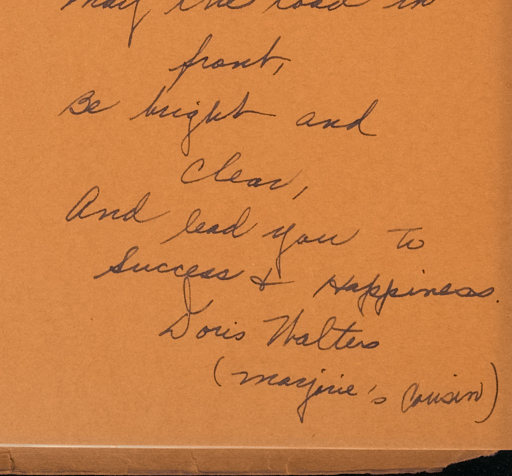 May the road in
front,
Be bright and
Clear,
And lead you to
Success & Happiness.
Doris Walters
(Marjorie's Cousin)